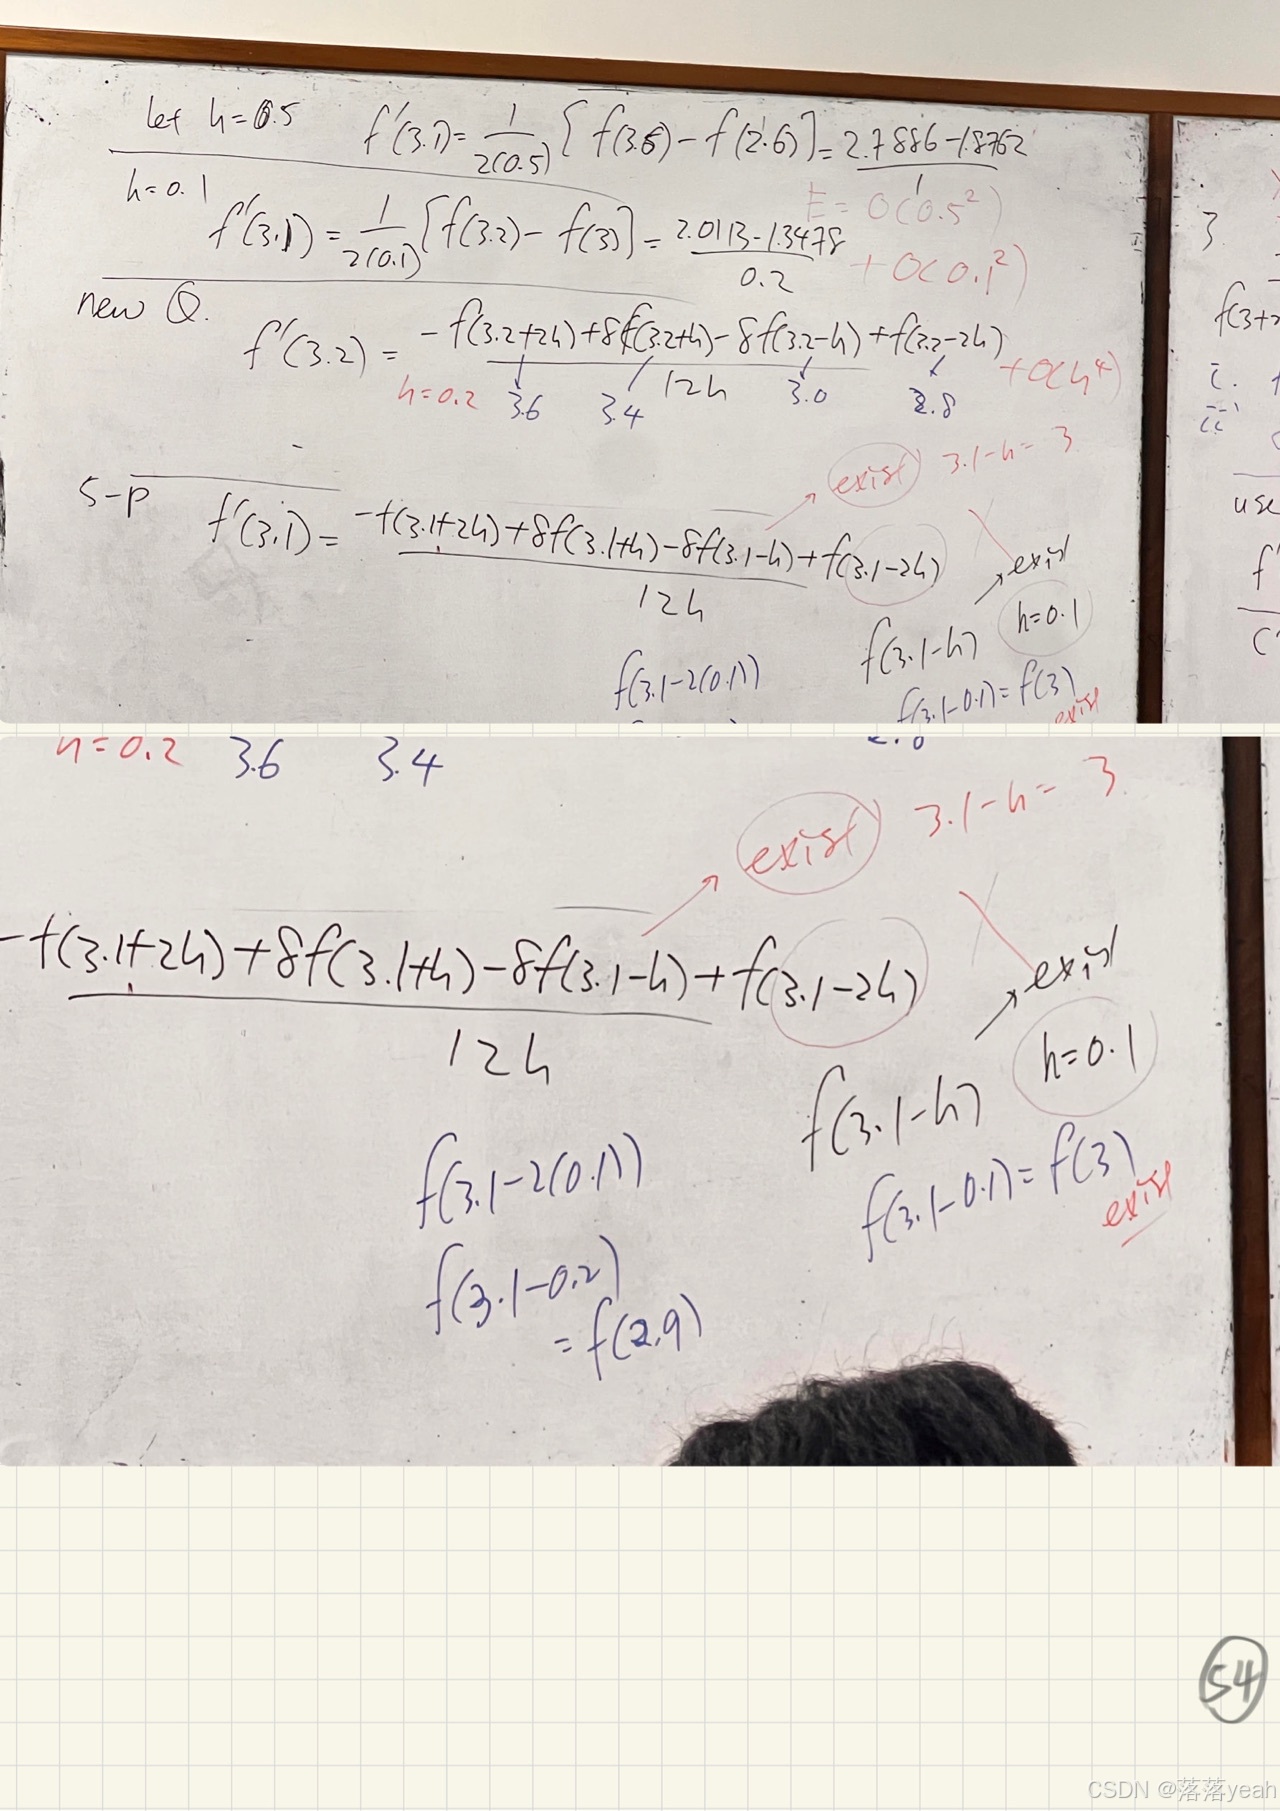 let h=0.5 f'(3.1)= 1/2(0.5) [f(3.6)-f(2.6)]= 2.7886-1.8762/1
E= O(0.5²)
h=0.1
f'(3.1)= 1/2(0.1) [f(3.2)-f(3)]= 2.0113-1.3478/0.2 +O(0.1²)
new Q.
f'(3.2)= -f(3.2+2h)+8f(3.2+h)-8f(3.2-h)+f(3.2-2h)/12h +O(h⁴)
h=0.2 3.6 3.4 3.0 2.8
exist 3.1-h= 3
5-p f'(3.1)= -f(3.1+2h)+8f(3.1+h)-8f(3.1-h)+f(3.1-2h)/12h
exist
h=0.1
f(3.1-h)
f(3.1-2(0.1))
f(3.1-0.1)=f(3)
exist
3
f(3+
i.
ii
use
f'
h=0.2 3.6 3.4 2.8
exist 3.1-h= 3
-f(3.1+2h)+8f(3.1+h)-8f(3.1-h)+f(3.1-2h)
12h
exist
h=0.1
f(3.1-h)
f(3.1-2(0.1))
f(3.1-0.1)=f(3)
exist
f(3.1-0.2)
=f(2.9)
54
CSDN @落落yeah